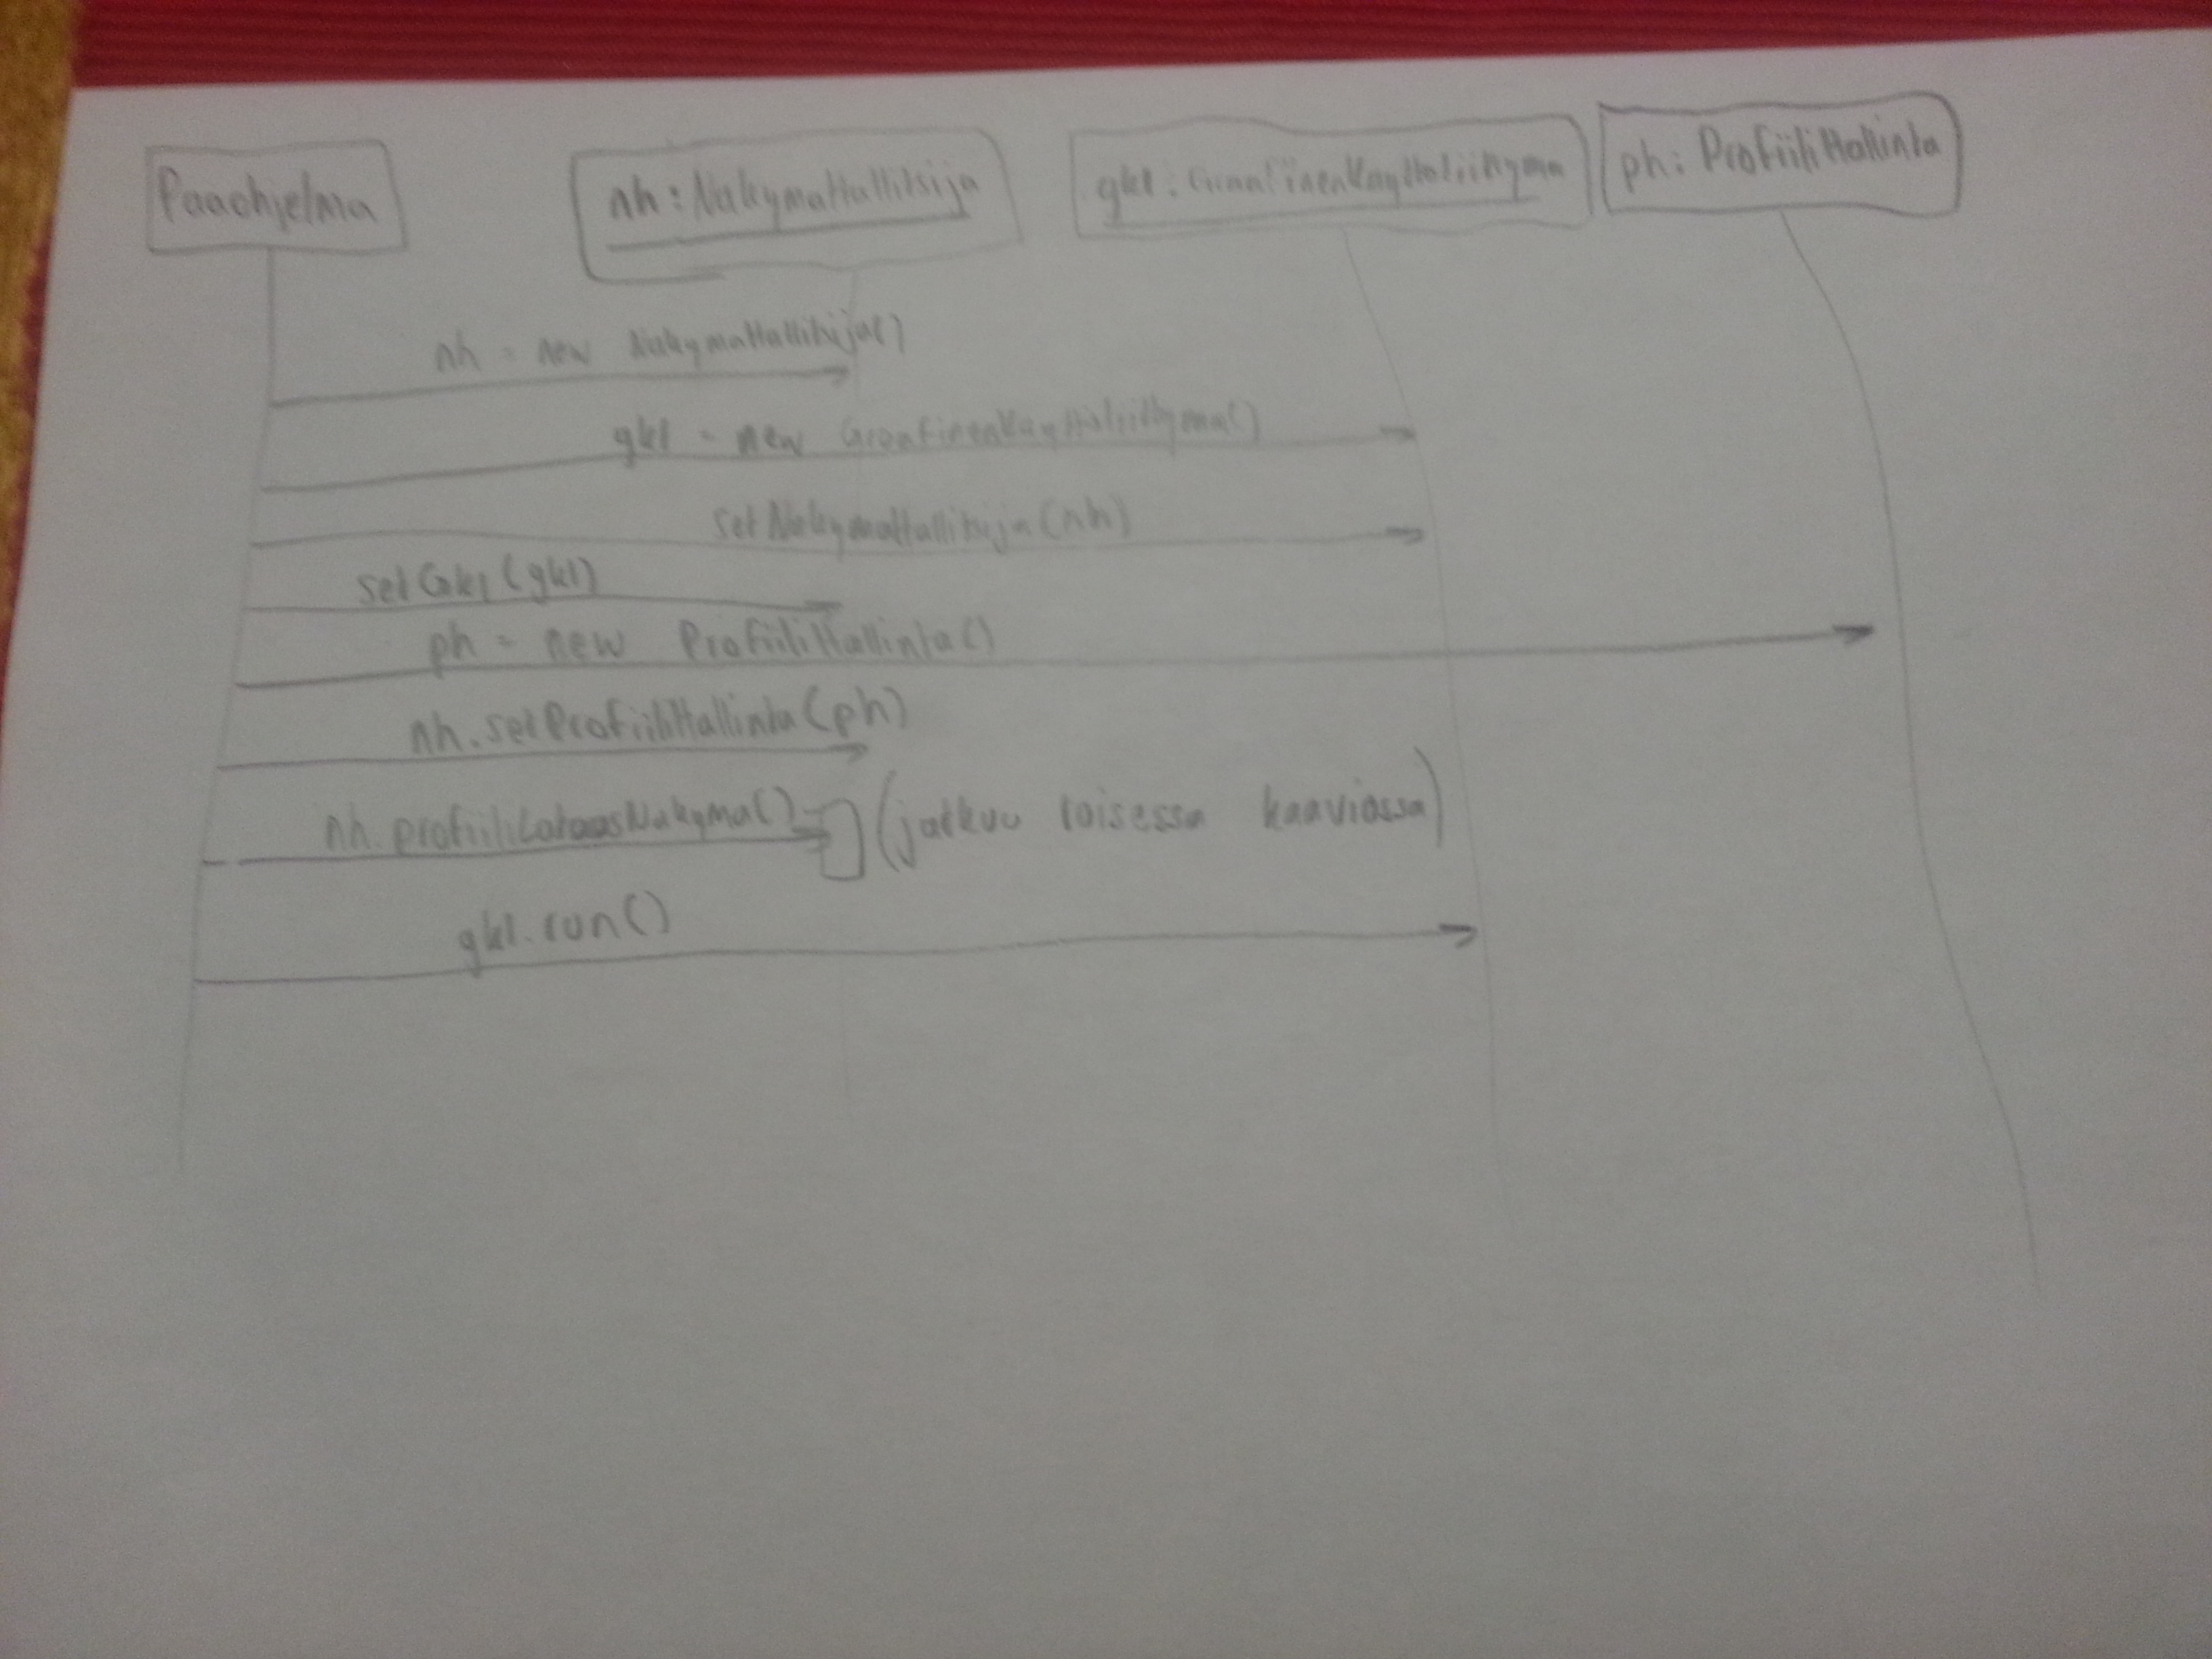 Paaohjelma
nh: NakymaHallitsija
gkl: GraafinenKayttoliittyma
ph: ProfiiliHallinta
nh = new NakymaHallitsija()
gkl = new GraafinenKayttoliittyma()
setNakymaHallitsija(nh)
setGkl(gkl)
ph = new ProfiiliHallinta()
nh.setProfiiliHallinta(ph)
nh.profiiliLatausNakyma() (jatkuu toisessa kaaviossa)
gkl.run()